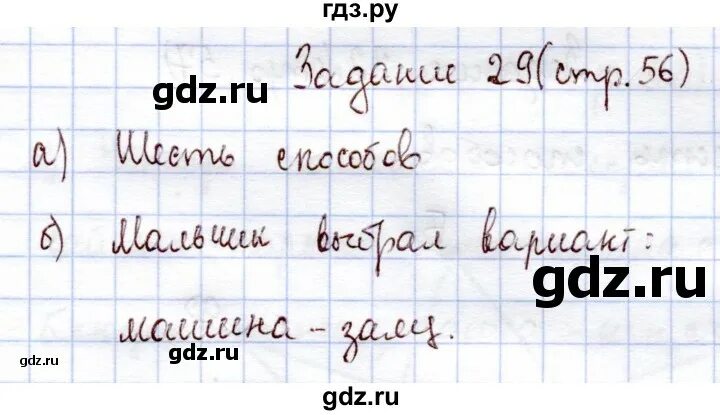 гдз.ру
Задание 29(стр.56)
gdz.ru
а) Шесть способов
б) Мальчик выбрал вариант:
gdz.ru
машина - заяц.
gdz.ru
gdz.ru
gdz.ru